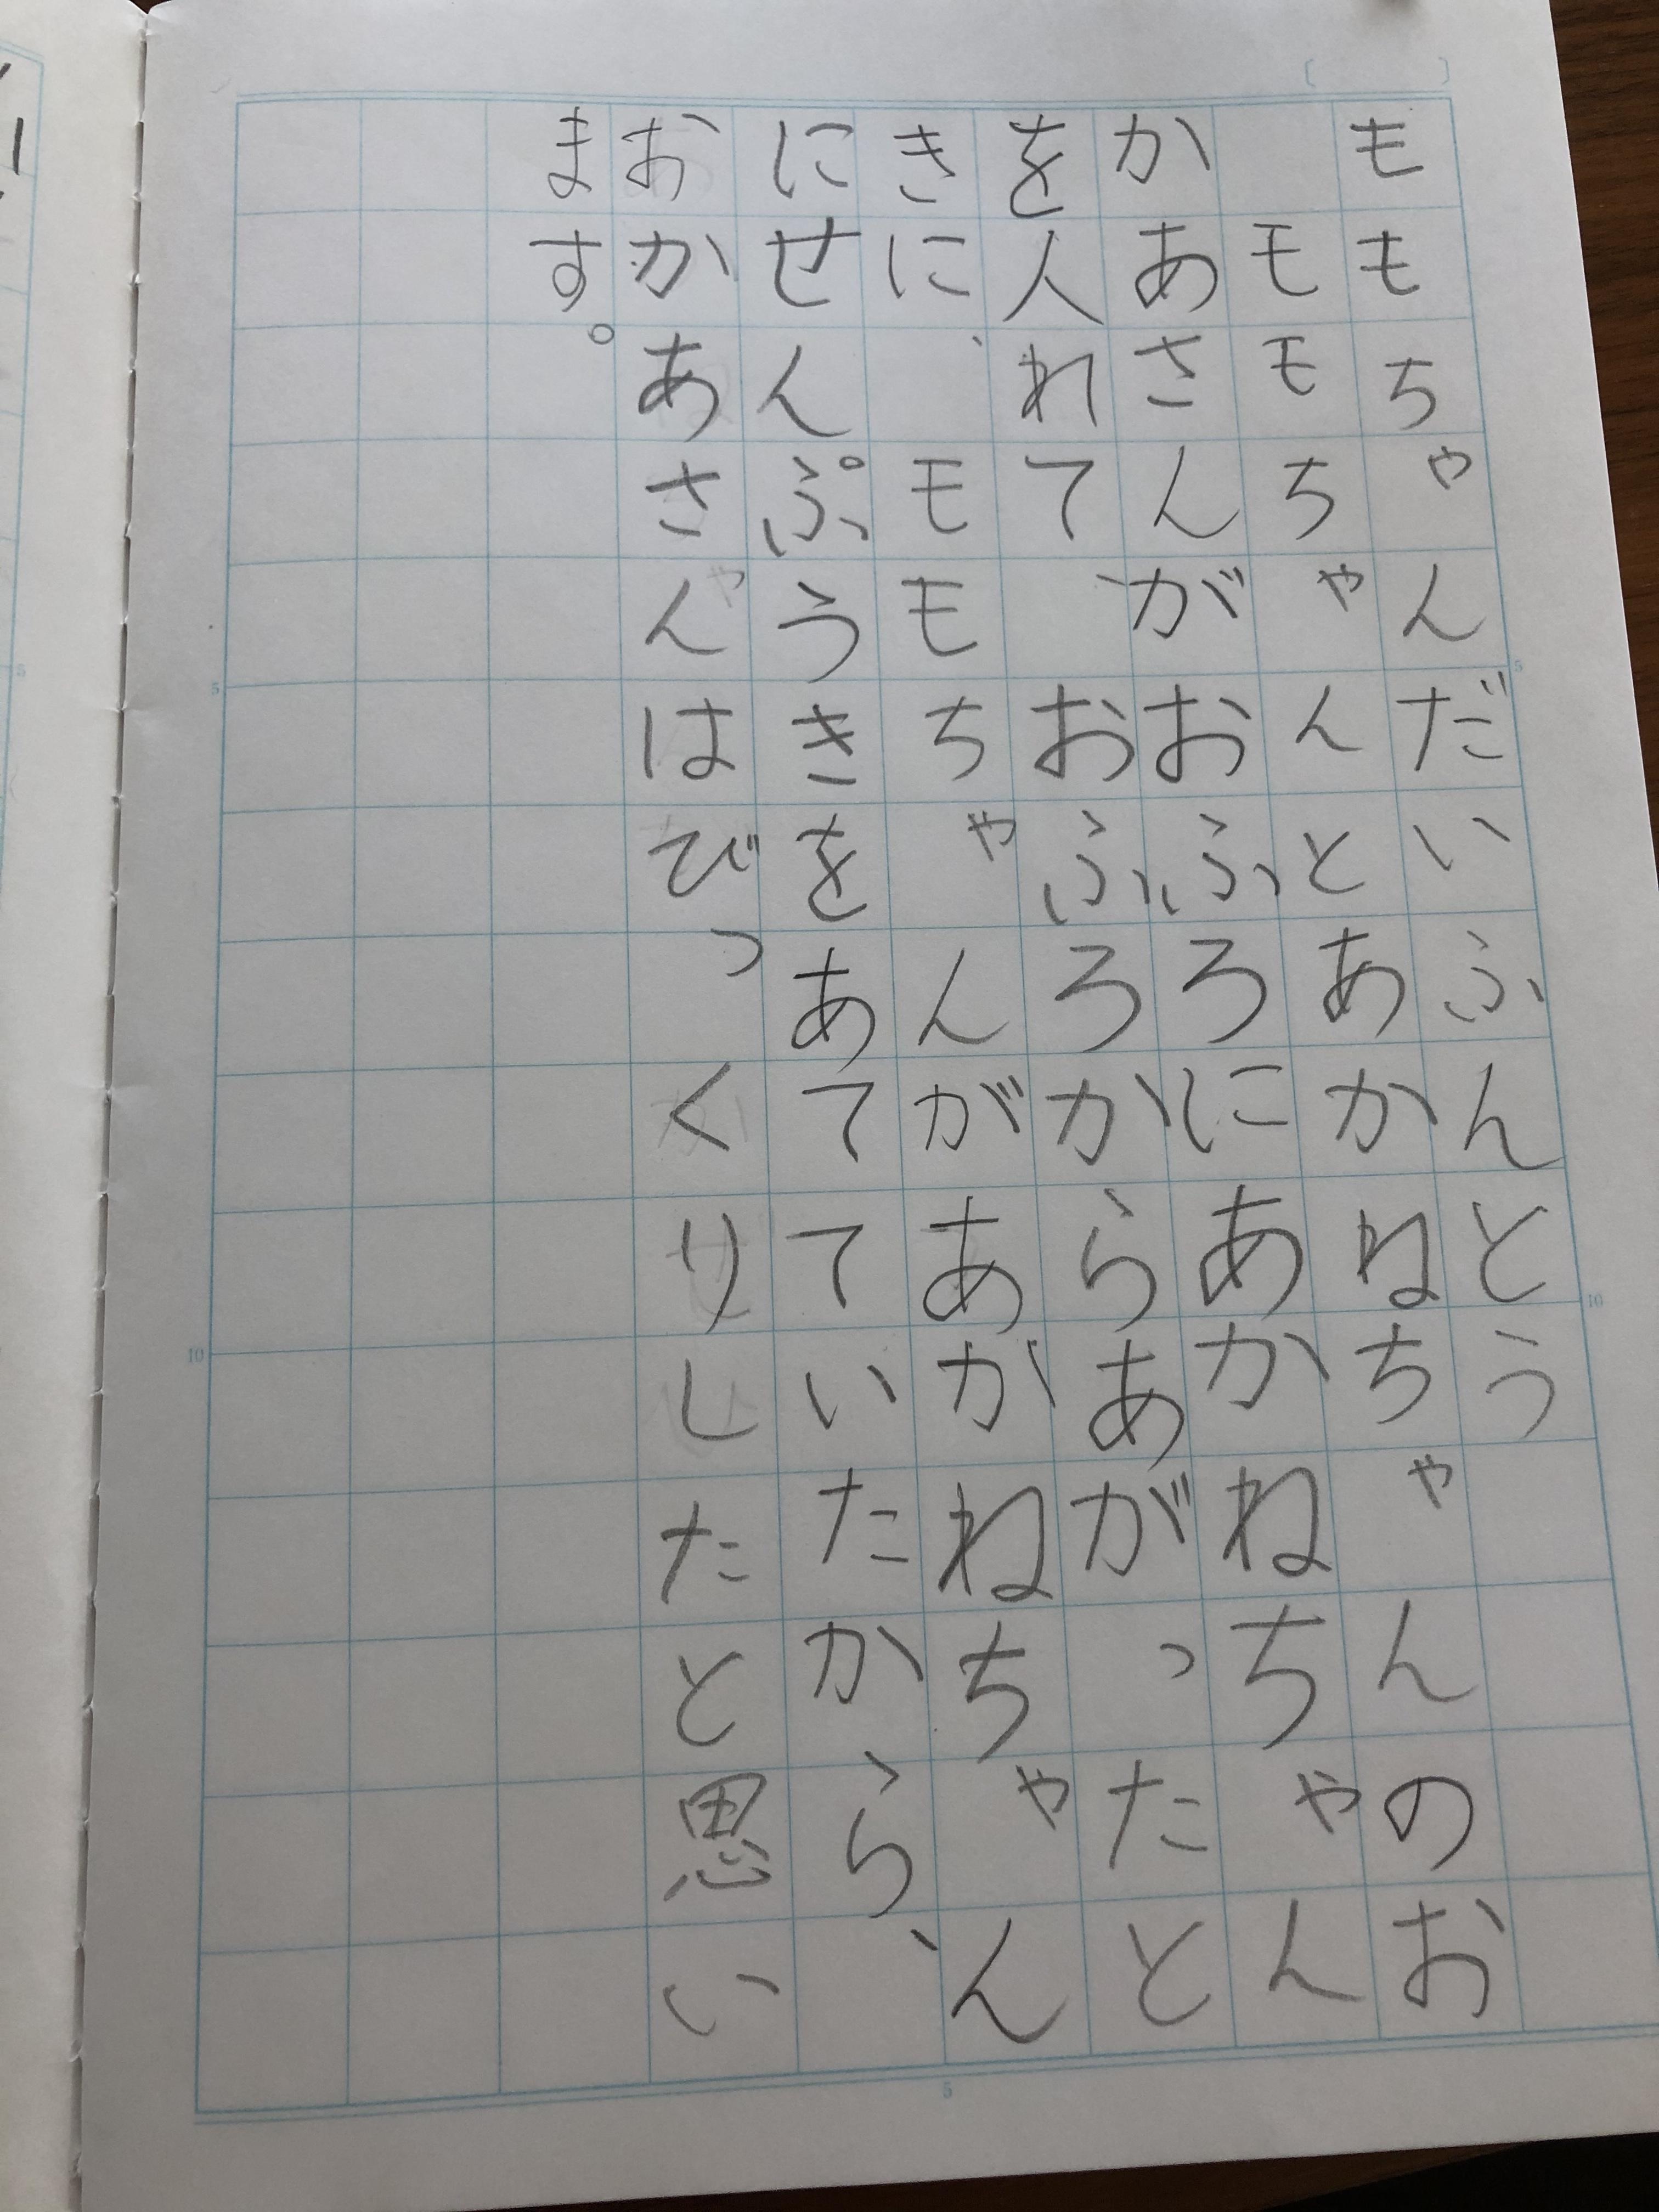 モモちゃんだいふんとう
モモちゃんとあかねちゃんのお
かあさんがおふろにあかねちゃん
を人れて、おふろからあがったと
きに、モモちゃんがあかねちゃん
にせんぷうきをあてていたから、
おかあさんはびっくりしたと思い
ます。